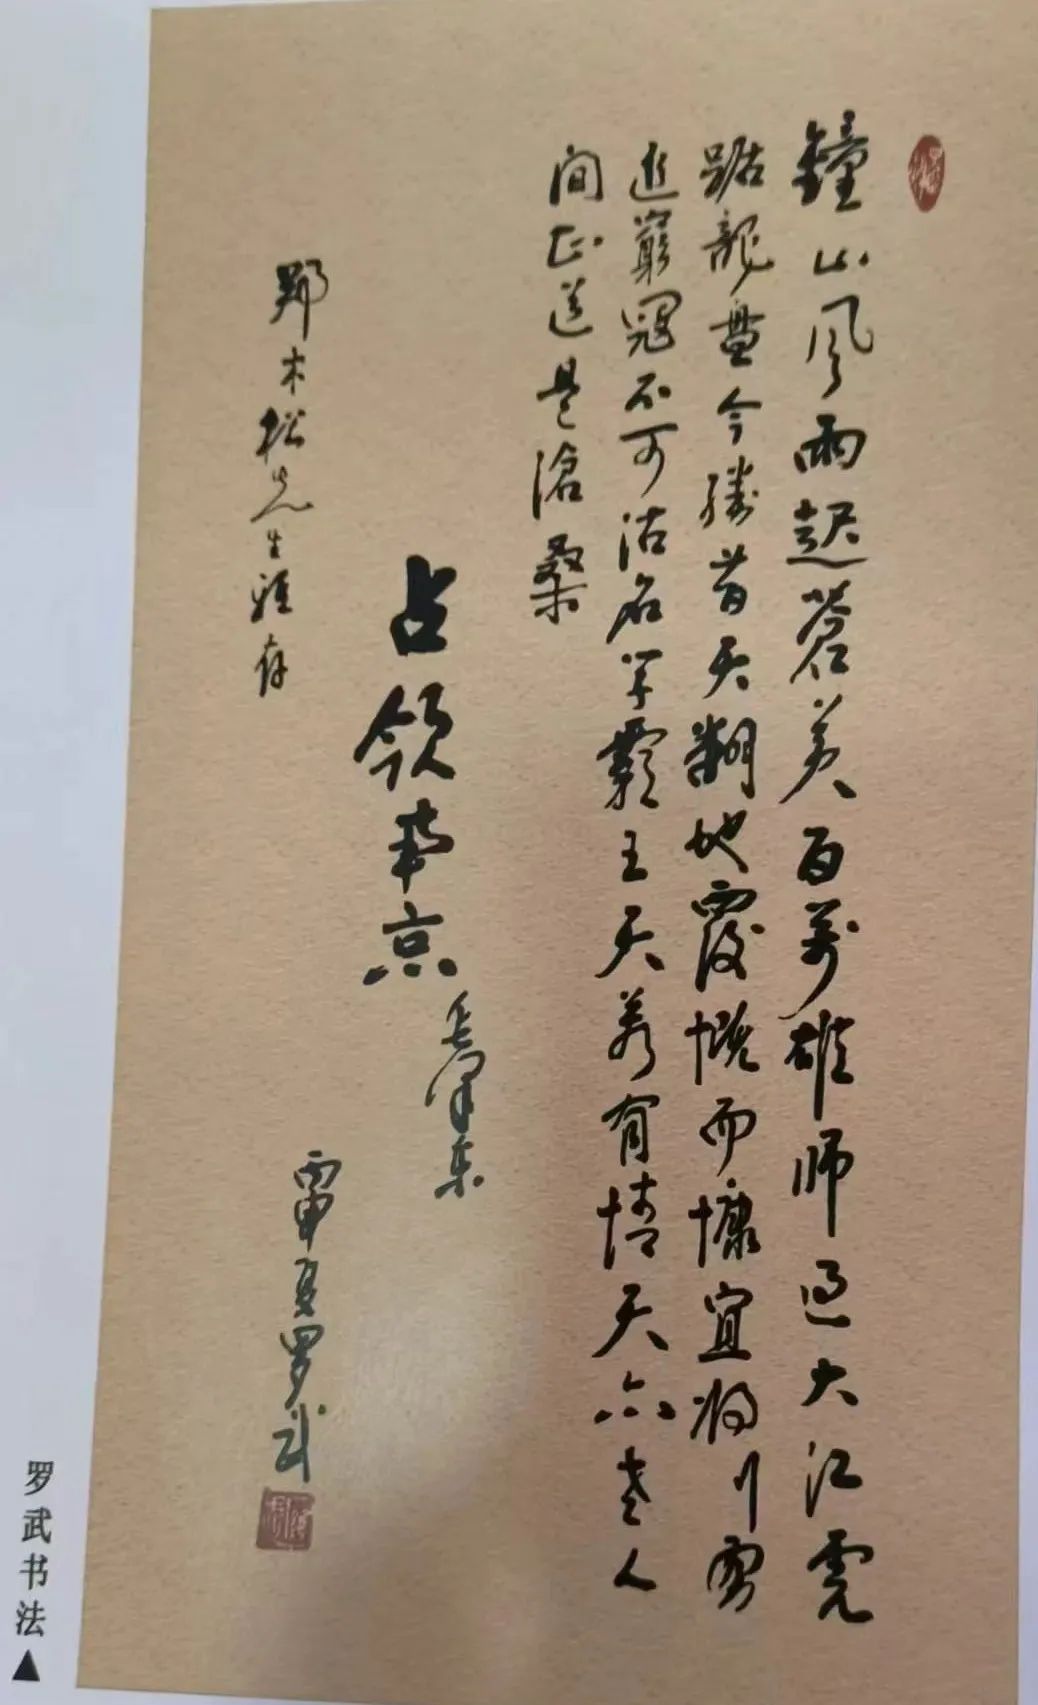 鐘山风雨起蒼黄百萬雄师过大江虎
踞龍盘今勝昔天翻地覆慨而慷宜将剩勇
追窮寇不可沽名学霸王天若有情天亦老人
间正道是滄桑
占领南京
毛泽东
鄭木松先生雅存
丙申夏罗武
罗武书法▲